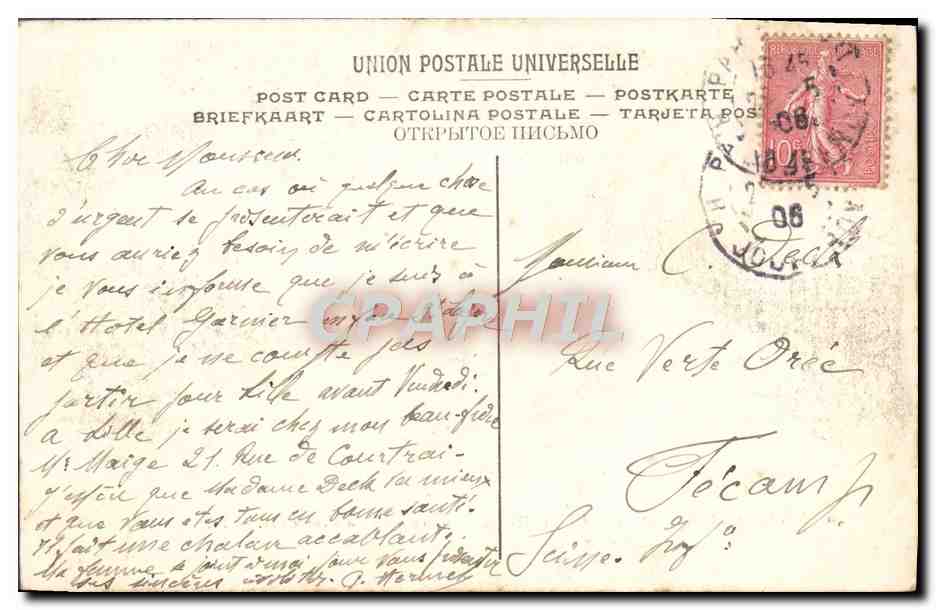 UNION POSTALE UNIVERSELLE
POST CARD — CARTE POSTALE — POSTKARTE
BRIEFKAART — CARTOLINA POSTALE — TARJETA POS
ОТКРЫТОЕ ПИСЬМО
Cher Monsieur.
Au cas où quelque chose
d'urgent se présenterait et que
vous auriez besoin de m'écrire
je vous informe que je suis à
l'Hotel Garnier
et que je ne compte pas
partir pour Lille avant Vendredi.
a Lille je serai chez mon beau-frère
Mr Maige 21. Rue de Courtrai-
J'espère que Madame Deck va mieux
et que vous êtes tous en bonne santé.
Il fait une chaleur accablante.
Ma femme se joint à moi pour vous présenter
ses sincères
Monsieur C. Deck
Rue Verte Orée
Fécamp
Seine Infre
REPUBLIQUE FRANÇAISE
10c
16 45
5
06
10 45
2 5
06
CPAPHIL